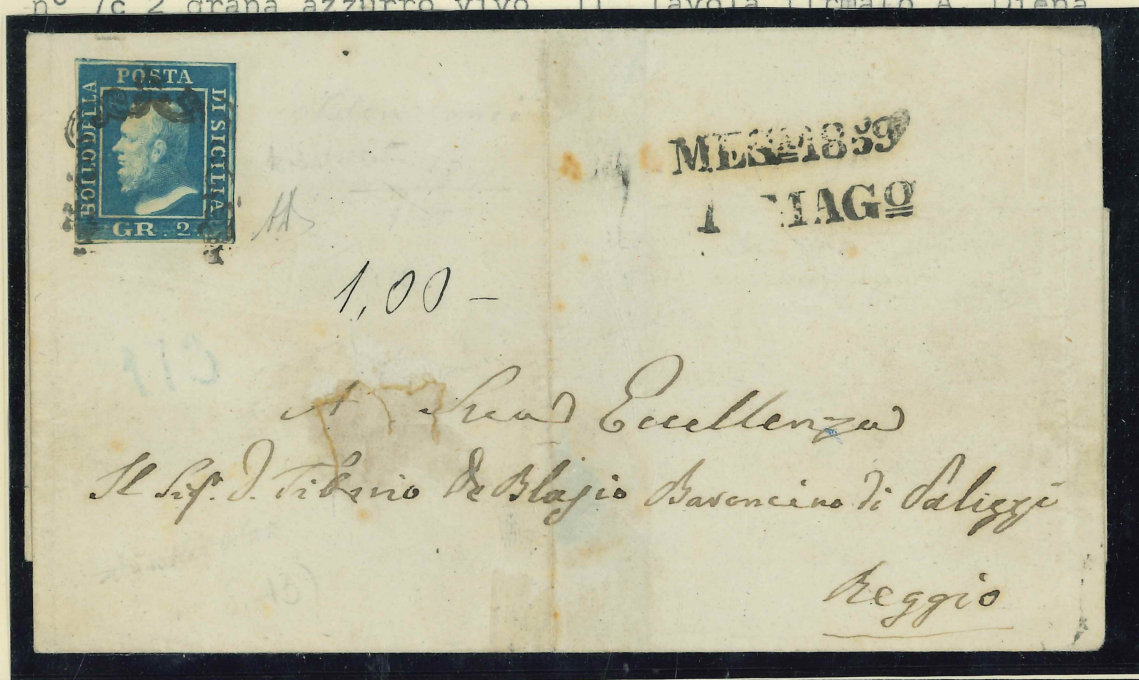 nº 7c 2 grana azzurro vivo II Tavola firmato A. Diena
POSTA
BOLLO DELLA
DI SICILIA
GR. 2.
MES 1859
MAGº
1,00 —
A Sua Eccellenza
Il Sig. D. Tiberio De Blasio Baroncino di Palizzi
Reggio